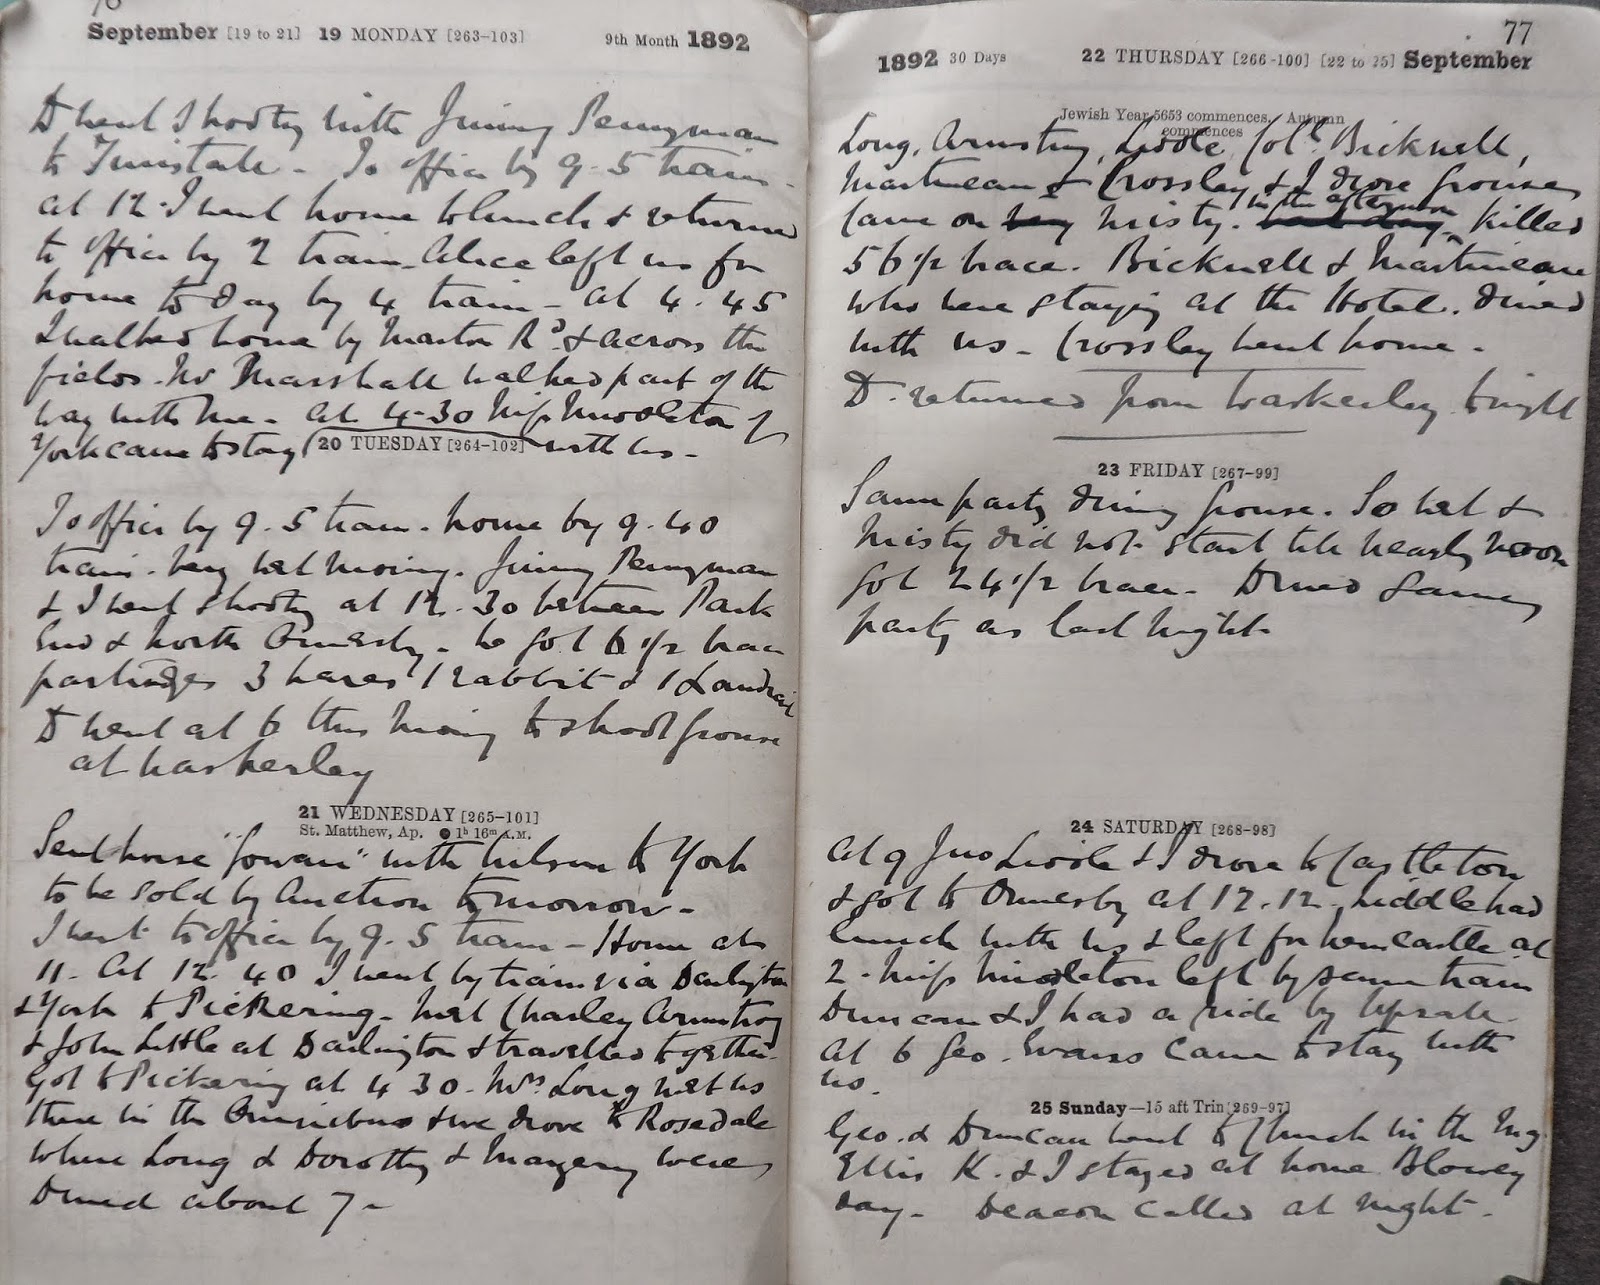 76
September [19 to 21] 19 MONDAY [263-103] 9th Month 1892
D went shooting with Jimmy Pennyman
to Tunstall - To office by 9.5 train -
at 12. I went home to lunch & returned
to office by 2 train - Alice left us for
home to day by 4 train - at 4.45
I walked home by Marton Rd & across the
fields. Mr Marshall walked part of the
way with me - at 4-30 Miss Middleton of
York came to stay with us -
20 TUESDAY [264-102]
To office by 9.5 train - home by 9.40
train - very wet morning. Jimmy Pennyman
& I went shooting at 12.30 between Park
End & North Ormesby - we got 6 1/2 brace
partridges 3 hares 1 rabbit & 1 Landrail
D went at 6 this morning to shoot grouse
at Waskerley
21 WEDNESDAY [265-101]
St. Matthew, Ap. ● 1h 16m A.M.
Sent horse "Gowan" with Wilson to York
to be sold by Auction tomorrow -
I went to office by 9.5 train - Home at
11 - At 12.40 I went by train via Darlington
& York to Pickering - met Charley Armstrong
& John Liddle at Darlington & travelled together.
Got to Pickering at 4 30 - Mrs Long met us
there in the Omnibus & we drove to Rosedale
where Long & Dorothy & Margery were
Dined about 7 -
77
1892 30 Days 22 THURSDAY [266-100] [22 to 25] September
Jewish Year 5653 commences. Autumn
commences
Long, Armstrong, Liddle, Col. Bicknell,
Martineau & Crossley & I drove grouse
came on very misty. in the afternoon killed
56 1/2 brace. Bicknell & Martineau
who were staying at the Hotel. dined
with us - Crossley went home -
D. returned from Waskerley tonight
23 FRIDAY [267-99]
Same party driving grouse. So wet &
misty did not start till nearly noon
got 24 1/2 brace - Dined same
party as last night -
24 SATURDAY [268-98]
At 9 Jno Liddle & I drove to Castleton
& got to Ormesby at 12.12, Liddle had
lunch with us & left for Newcastle at
2 - Miss Middleton left by same train
Duncan & I had a ride by Upsall.
At 6 Geo. Evans came to stay with
us.
25 Sunday—15 aft Trin [269-97]
Geo. & Duncan went to Church in the Mng
Ellis K. & I stayed at home Blowey
day - Deacon called at night -